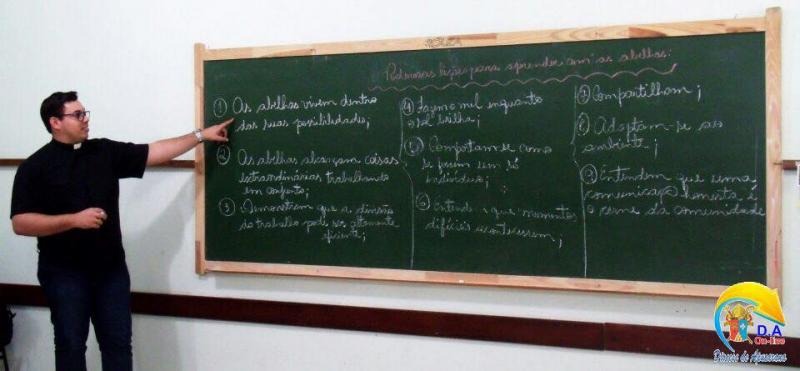 SOUZA
Poderosas lições para aprender com as abelhas:
① As abelhas vivem dentro
das suas possibilidades;
② As abelhas alcançam coisas
extraordinárias trabalhando
em conjunto;
③ Demonstram que a divisão
do trabalho pode ser altamente
eficiente;
④ Fazem o mel enquanto
o sol brilha;
⑤ Comportam-se como
se fossem um só
indivíduo;
⑥ Entendem que momentos
difíceis acontecessem;
⑦ Compartilham;
⑧ Adaptam-se ao
ambiente;
⑨ Entendem que uma
comunicação honesta é
o cerne da comunidade
D.A
On-line
Diocese de Apucarana